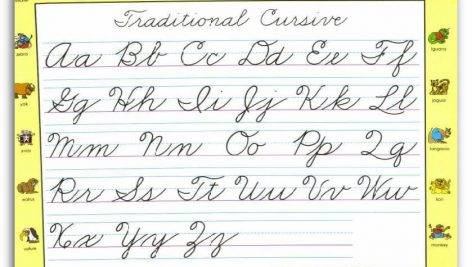 Traditional Cursive
Aa Bb Cc Dd Ee Ff
Gg Hh Ii Jj Kk Ll
Mm Nn Oo Pp Qq
Rr Ss Tt Uu Vv Ww
Xx Yy Zz
zebra
yak
walrus
vulture
iguana
jaguar
kangaroo
lion
monkey